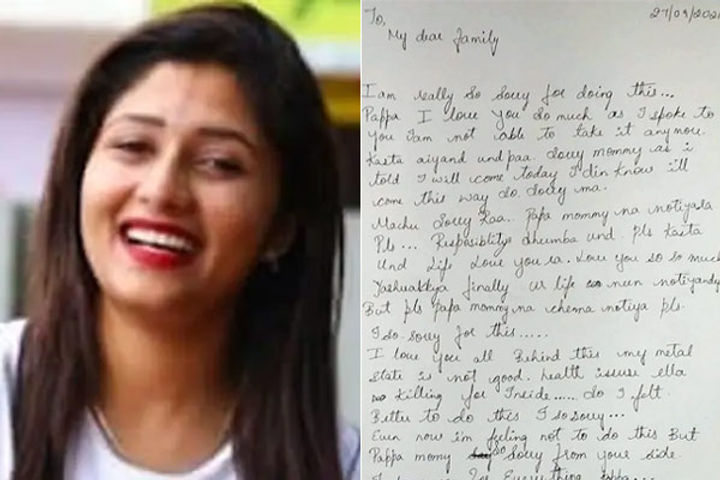 To,
27/09/202
My dear family
I am really so sorry for doing this...
Pappa I love you so much as I spoke to
you I am not able to take it anymore.
Kasta aiyand undpaa. Sorry mommy as i
told I will come today I din know i'll
come this way so. Sorry ma.
Machu Sorry Raa.. Papa mommy na notiyala
Pls... Resposiblity dhumba und. pls Kasta
Und life Love you ra. Love you so so much
Yashuakkya finally ur life nun notiyandy
But pls papa mommy na chenna notiya pls.
I so sorry for this.....
I love you all Behind this my metal
State is not good. health issuse ella
Killing for Inside...... So I felt
Better to do this I so sorry...
Even now im feeling not to do this But
Pappa momy so sorry from your side.
for Everything